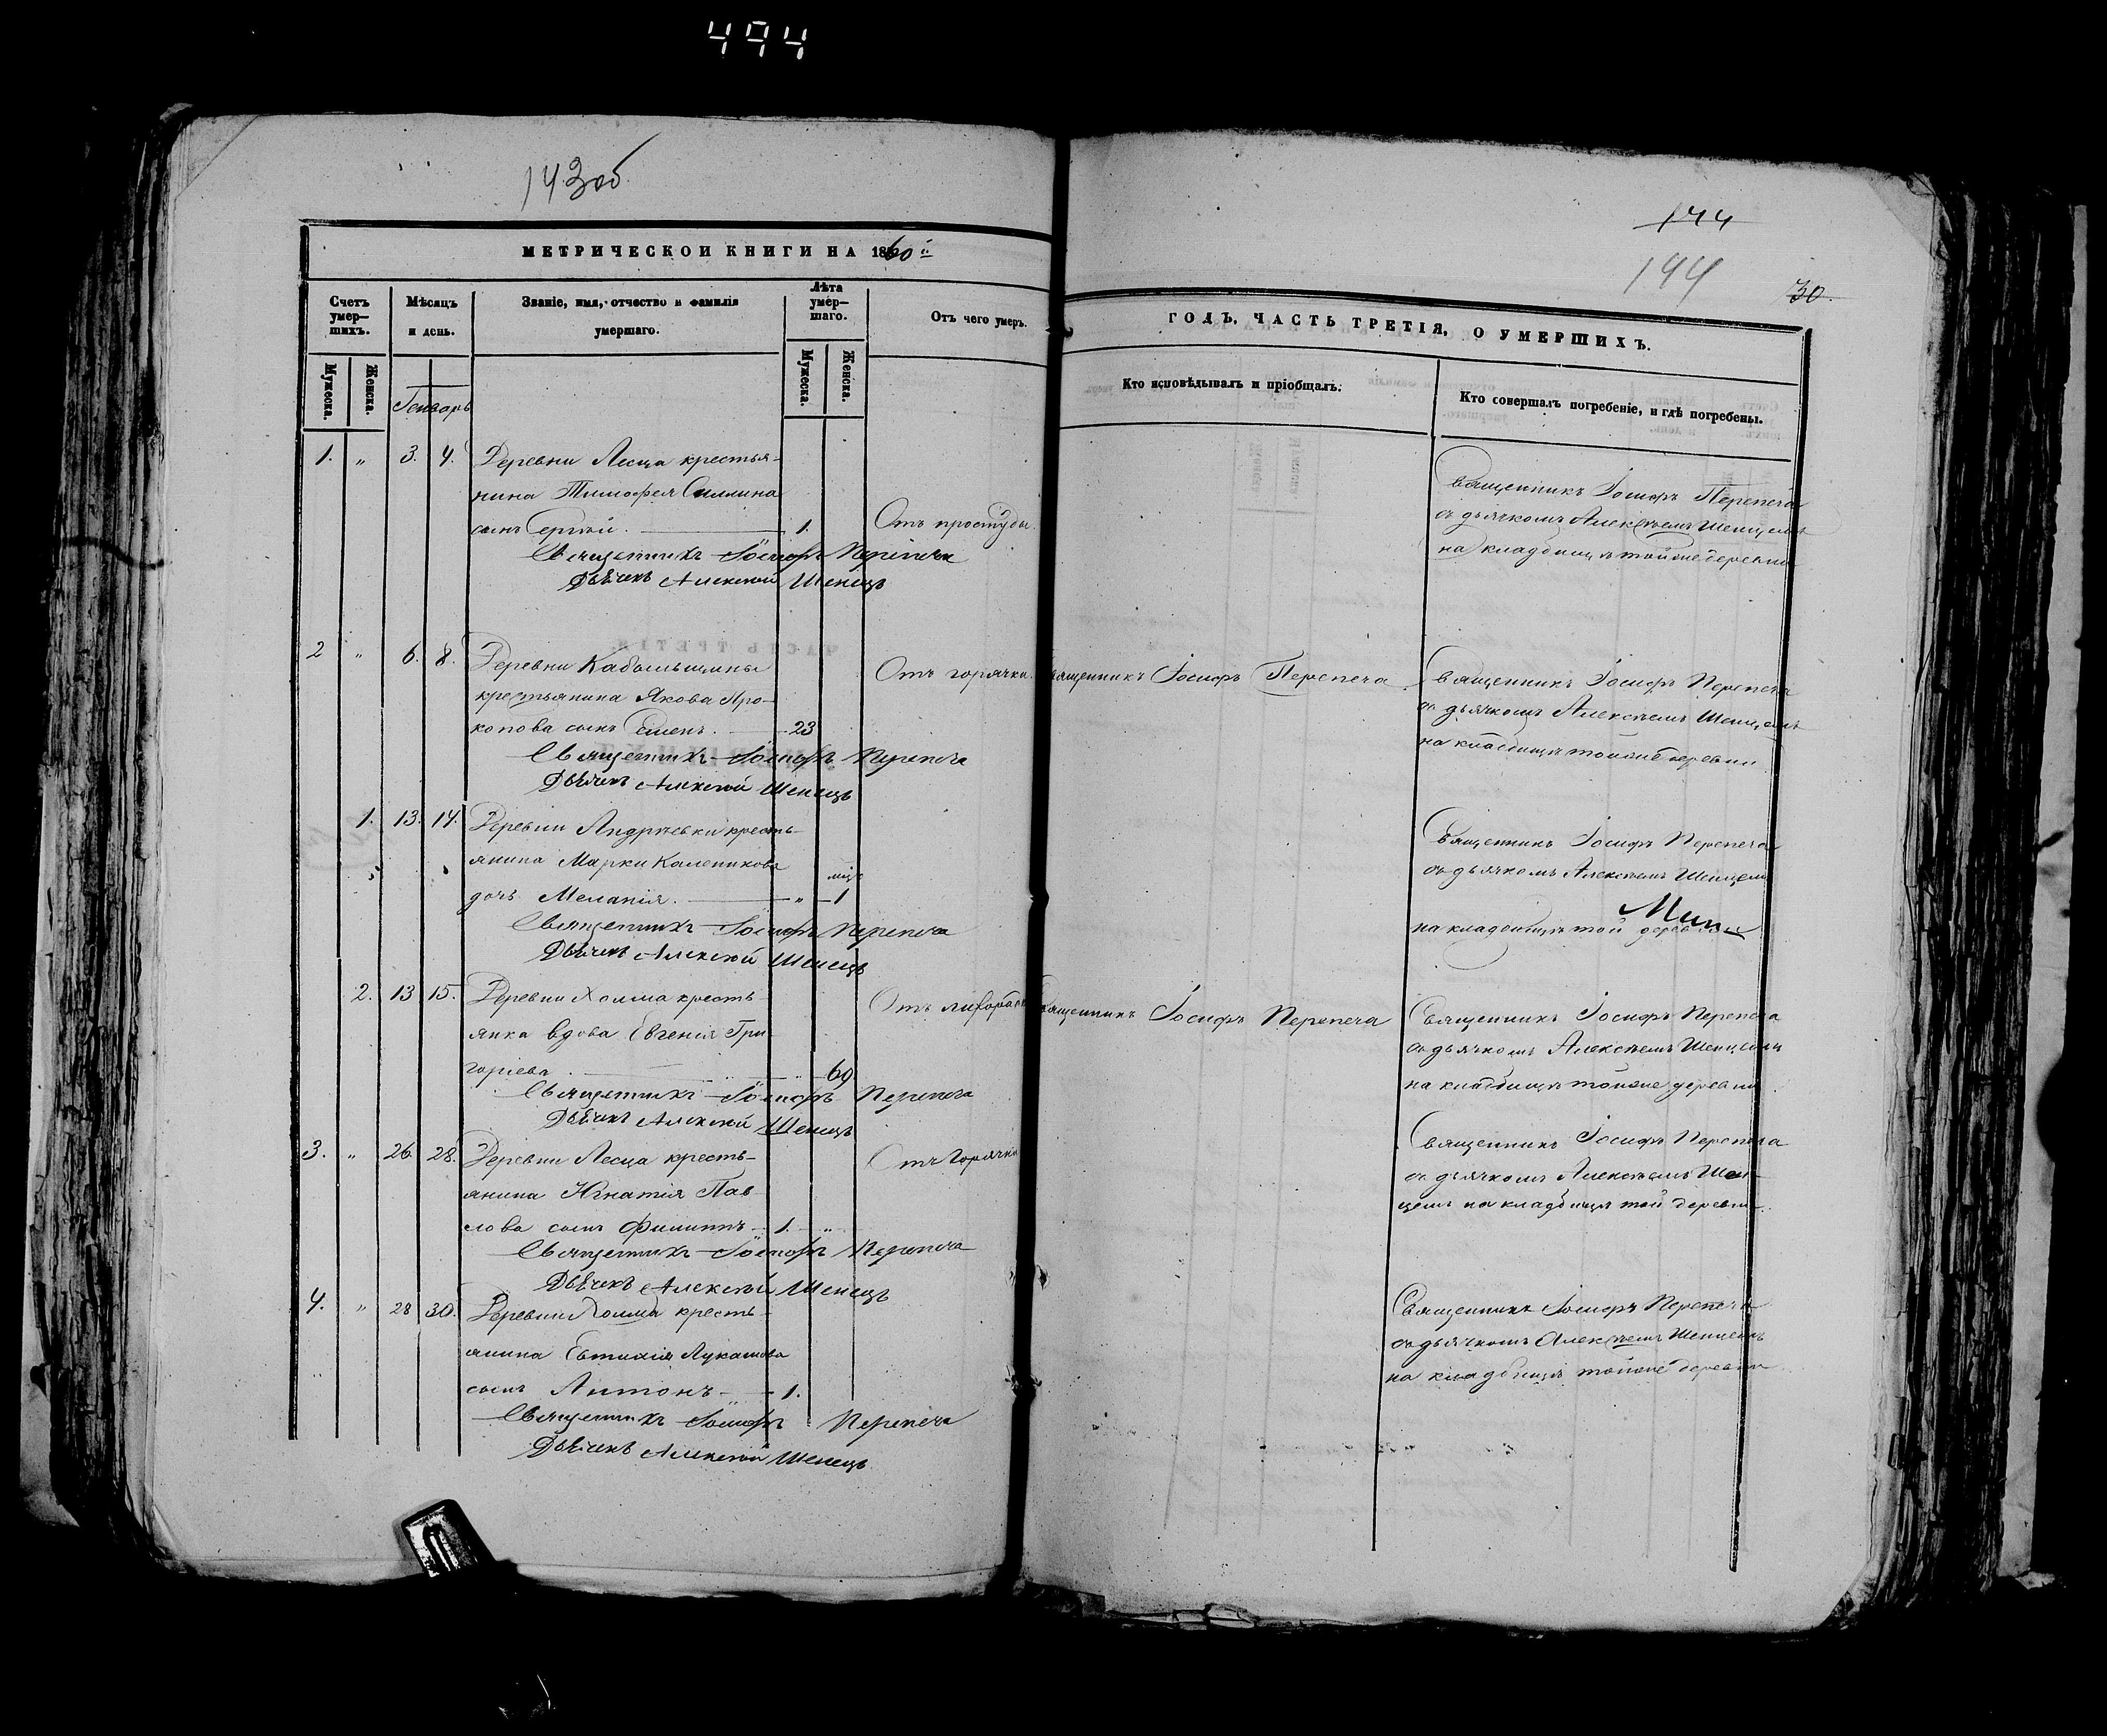 494
143 об
144
144
30.
МЕТРИЧЕСКОЙ КНИГИ НА 1860й
ГОДЪ, ЧАСТЬ ТРЕТІЯ, О УМЕРШИХЪ.
Счетъ умер—шихъ.
Мѣсяцъ и день.
Званіе, имя, отчество и фамилія умершаго.
Лѣта умер—шаго.
Отъ чего умеръ.
Кто исповѣдывалъ и пріобщалъ.
Кто совершалъ погребеніе, и гдѣ погребены.
Мужеска.
Женска.
Мужеска.
Женска.
Генварь
1. „ 3. 4. Деревни Лесца крестья-
нина Тимофея Силлина
сынъ Сергѣй. 1. Отъ простуды.
Священникъ Іосифъ Перепеча
съ дьячкомъ Алексѣемъ Шенцемъ
на кладбищѣ тойже деревни
Священникъ Іосифъ Перепеча
Дьячекъ Алексѣй Шенецъ
2 „ 6. 8. Деревни
крестьянина Якова Про-
копова сынъ Семенъ. 23
Отъ горячки. Священникъ Іосифъ Перепеча
Священникъ Іосифъ Перепеча
съ дьячкомъ Алексѣемъ Шенцемъ
на кладбищѣ тойже деревни
Священникъ Іосифъ Перепеча
Дьячекъ Алексѣй Шенецъ
1. 13. 14. Деревни Андрѣевки кресть-
янина Марки Каленикова
дочь Меланія. „ 1
Священникъ Іосифъ Перепеча
съ дьячкомъ Алексѣемъ Шенцемъ
на кладбищѣ той деревни
Священникъ Іосифъ Перепеча
Дьячекъ Алексѣй Шенецъ
2. 13 15. Деревни Холма кресть-
янка вдова Евгенія Гри-
горіева. „ 69
Священникъ Іосифъ Перепеча
Священникъ Іосифъ Перепеча
съ дьячкомъ Алексѣемъ Шенцемъ
на кладбищѣ тойже деревни
Священникъ Іосифъ Перепеча
Дьячекъ Алексѣй Шенецъ
3. „ 26 28. Деревни Лесца кресть-
янина Игнатія Пав-
лова сынъ Филиппъ 1. „
Отъ горячки
Священникъ Іосифъ Перепеча
съ дьячкомъ Алексѣемъ Шен-
цемъ на кладбищѣ той деревни.
Священникъ Іосифъ Перепеча
Дьячекъ Алексѣй Шенецъ
4. „ 28 30. Деревни Холма кресть-
янина Евтихія Лукашова
сынъ Антонъ 1.
Священникъ Іосифъ Перепеча
съ дьячкомъ Алексѣемъ Шенцемъ
на кладбищѣ тойже деревни
Священникъ Іосифъ Перепеча
Дьячекъ Алексѣй Шенецъ